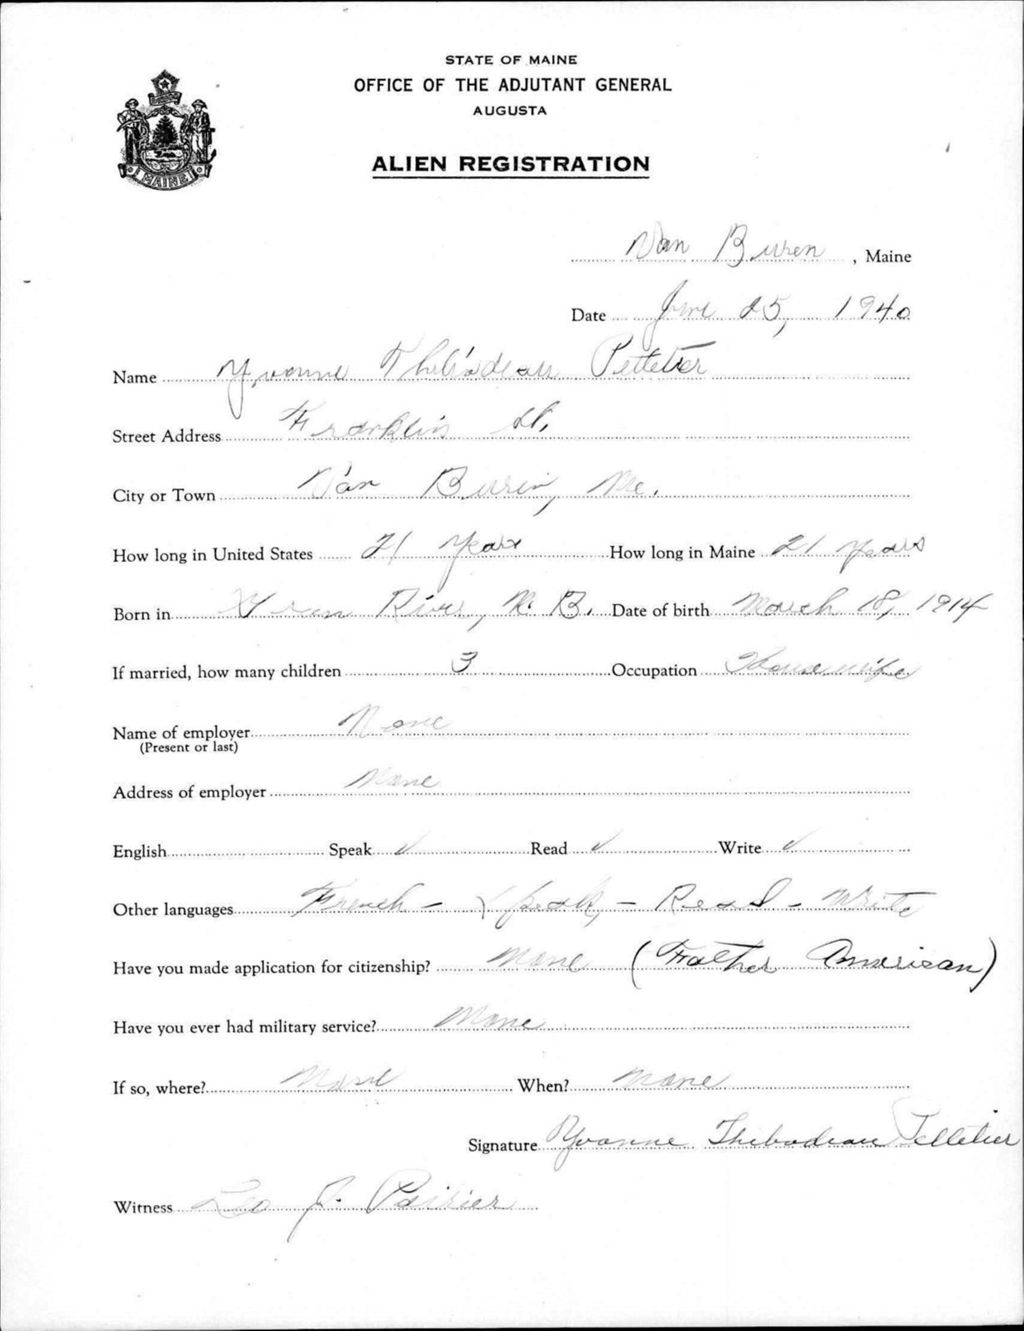 STATE OF MAINE
OFFICE OF THE ADJUTANT GENERAL
AUGUSTA
MAINE
ALIEN REGISTRATION
Van Buren, Maine
Date June 25, 1940
Name Yvonne Thibodeau Pelletier
Street Address Franklin St.
City or Town Van Buren, Me.
How long in United States 21 years How long in Maine 21 years
Born in River, N. B. Date of birth March 18, 1914
If married, how many children 3 Occupation Housewife
Name of employer None
(Present or last)
Address of employer None
English Speak ✓ Read ✓ Write ✓
Other languages French - Speak, - Read - Write
Have you made application for citizenship? None (Father American)
Have you ever had military service? None
If so, where? None When? None
Signature Yvonne Thibodeau Pelletier
Witness Leo J. Poirier